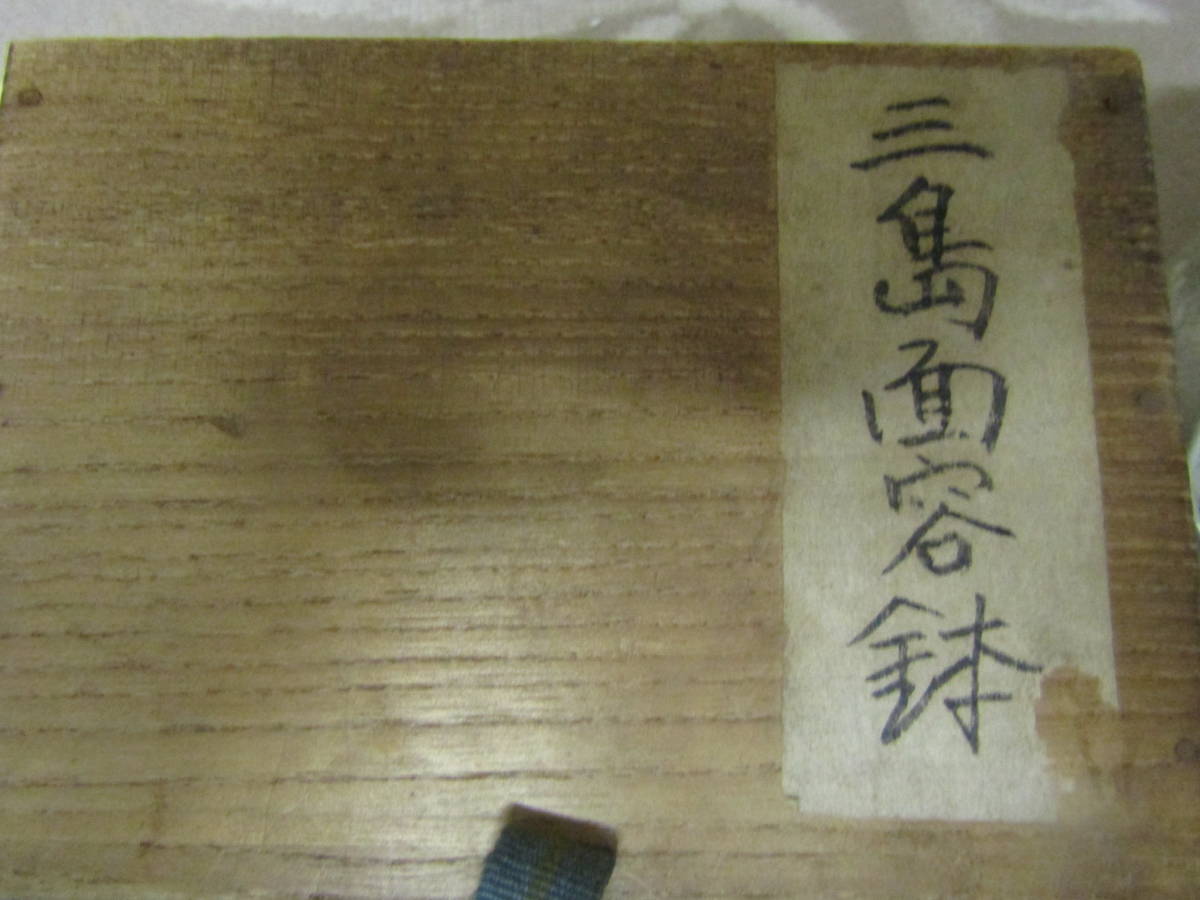 三島面容鉢